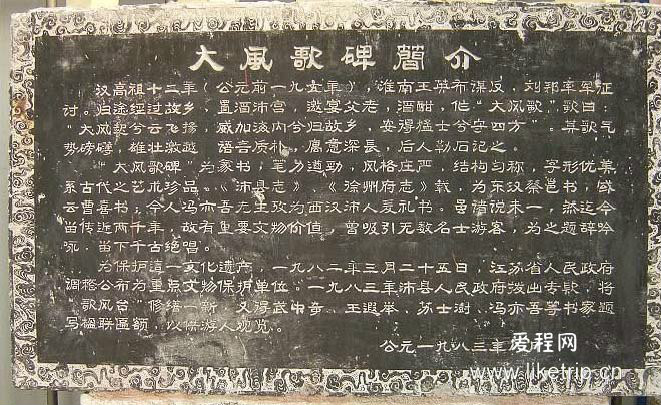 大风歌碑简介
汉高祖十二年(公元前一九五年),淮南王英布谋反,刘邦率军征
讨。归途经过故乡,置酒沛宫,邀宴父老,酒酣,作"大风歌",歌曰:
"大风起兮云飞扬,威加海内兮归故乡,安得猛士兮守四方"。其歌气
势磅礴,雄壮激越,语言质朴,寓意深长,后人勒石记之。
"大风歌碑"为篆书,笔力遒劲,风格庄严,结构匀称,字形优美
系古代之艺术珍品。《沛县志》《徐州府志》载,为东汉蔡邕书,或
云曹喜书,今人冯亦吾先生考为西汉沛人爰礼书。虽诸说未一,然迄今
留传近两千年,故有重要文物价值,曾吸引无数名士游客,为之题辞吟
咏,留下千古绝唱。
为保护这一文化遗产,一九八二年三月二十五日,江苏省人民政府
调整公布为重点文物保护单位。一九八三年沛县人民政府拨出专款,将
"歌风台"修缮一新,又得武中奇、王遐举、苏士澍、冯亦吾等书家题
写楹联匾额,以供游人观览。
公元一九八三年
爱程网
www.liketrip.cn